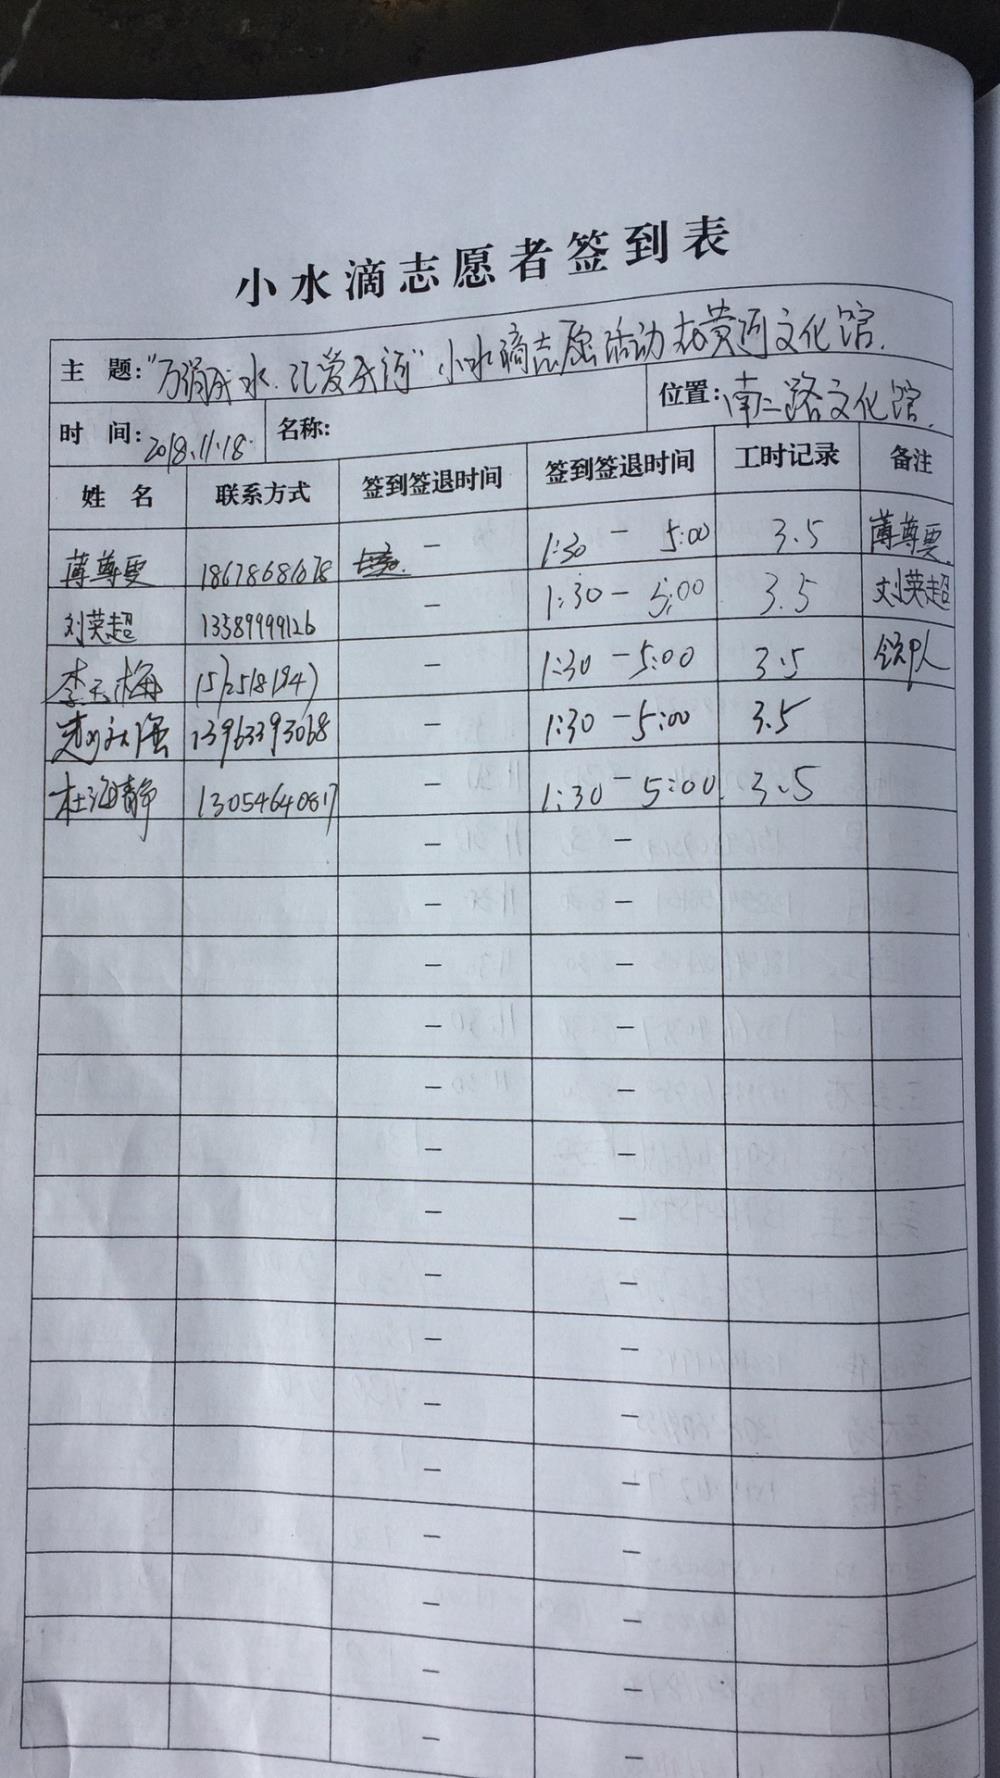 小水滴志愿者签到表
主 题:"万涓成水.汇爱成河"小水滴志愿活动在黄河文化馆.
时 间:2018.11.18. 名称: 位置:南二路文化馆.
姓 名 联系方式 签到签退时间 签到签退时间 工时记录 备注
薄尊要 18678681678 — 1:30 — 5:00 3.5 薄尊要
刘英超 13389999126 — 1:30 — 5:00 3.5 刘英超
李天梅 — 1:30 — 5:00 3.5
13963393068 — 1:30 — 5:00 3.5
杜海静 13054640617 — 1:30 — 5:00 3.5